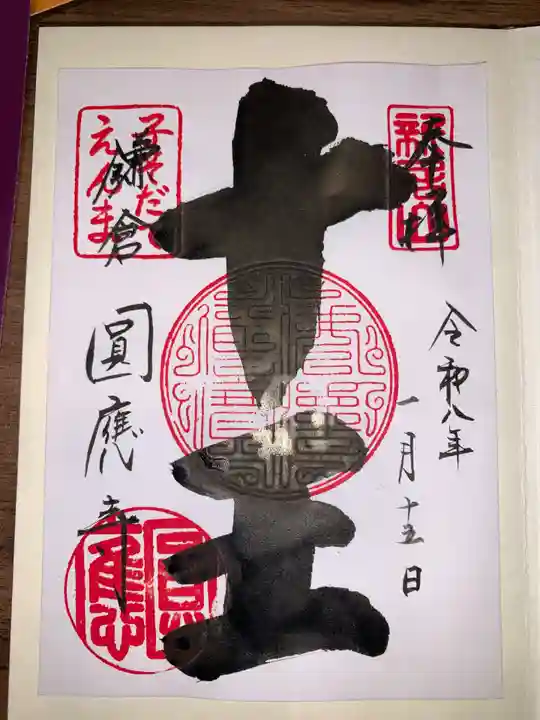 奉拝
令和八年
一月十五日
十王
子そだて
えんま
鎌倉
圓應寺